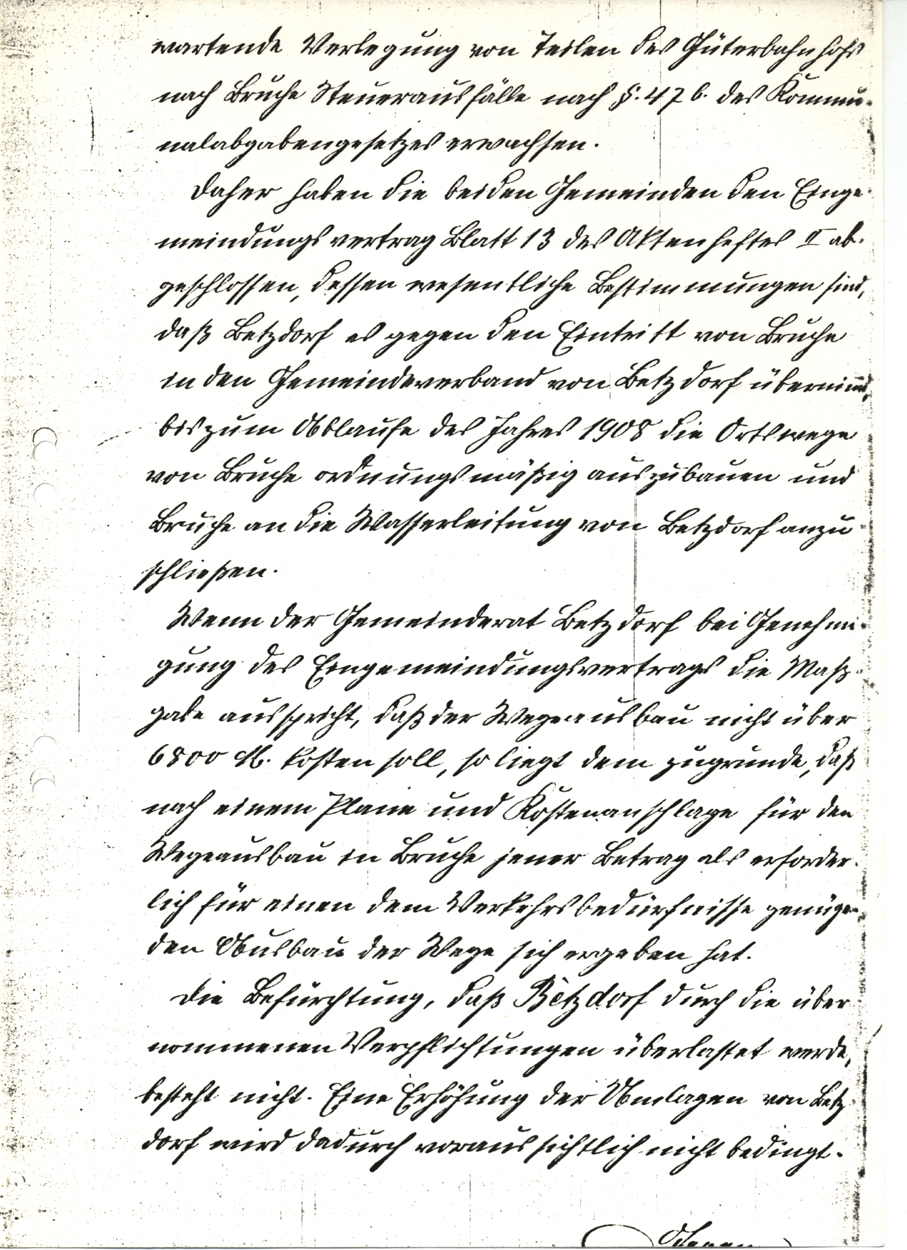 wartende Verlegung von Teilen des Güterbahnhofs
nach Bruche Steuerausfälle nach §. 47 b. des Kommu-
nalabgabengesetzes erwachsen.
Daher haben die beiden Gemeinden den Einge-
meindungsvertrag Blatt 13 des Aktenheftes II ab-
geschlossen, dessen wesentliche Bestimmungen sind,
daß Betzdorf es gegen den Eintritt von Bruche
in den Gemeindeverband von Betzdorf übernimmt,
bis zum Ablaufe des Jahres 1908 die Ortswege
von Bruche ordnungsmäßig auszubauen und
Bruche an die Wasserleitung von Betzdorf anzu
schließen.
Wenn der Gemeinderat Betzdorf bei Genehmi-
gung des Eingemeindungsvertrags die Maß-
gabe ausspricht, daß der Wegeausbau nicht über
6800 M. kosten soll, so liegt dem zugrunde, daß
nach einem Plane und Kostenanschlage für den
Wegeausbau in Bruche jener Betrag als erforder-
lich für einen dem Verkehrsbedürfnisse genügen-
den Ausbau der Wege sich ergeben hat.
Die Befürchtung, daß Betzdorf durch die über-
nommenen Verpflichtungen überlastet werde,
besteht nicht. Eine Erhöhung der Umlagen von Betz-
dorf wird dadurch voraussichtlich nicht bedingt.